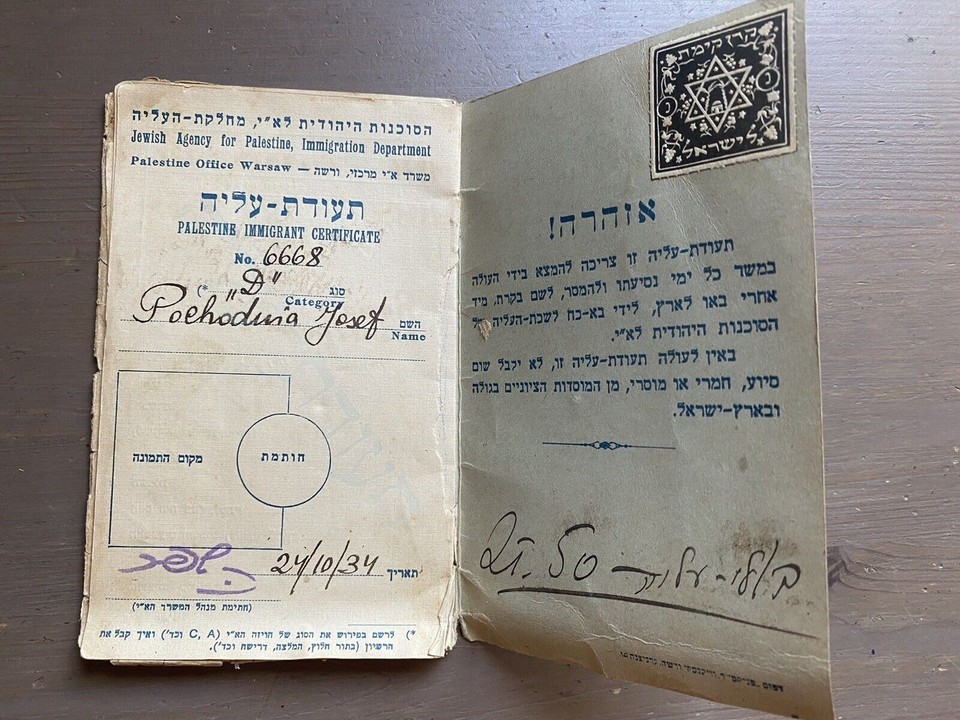 הסוכנות היהודית לא"י, מחלקת-העליה
Jewish Agency for Palestine, Immigration Department
Palestine Office Warsaw — משרד א"י מרכזי, ורשה
תעודת-עליה
PALESTINE IMMIGRANT CERTIFICATE
No. 6668
(* „D" סוג
Category
Pochodnia Josef השם
Name
מקום התמונה
חותמת
24/10/34 תאריך
(חתימת מנהל המשרד הא"י)
*) לרשם בפירוש את הסוג של הויזה הא"י (C, A וכד') ואיך קבל את
הרשיון (בתור חלוץ, המלצה, דרישה וכד').
קרן קימת
לישראל
אזהרה!
תעודת-עליה זו צריכה להמצא בידי העולה
במשך כל ימי נסיעתו ולהמסר, לשם בקרת, מיד
אחרי באו לארץ, לידי בא-כח לשכת-העליה של
הסוכנות היהודית לא"י.
באין לעולה תעודת-עליה זו, לא יקבל שום
סיוע, חמרי או מוסרי, מן המוסדות הציוניים בגולה
ובארץ-ישראל.